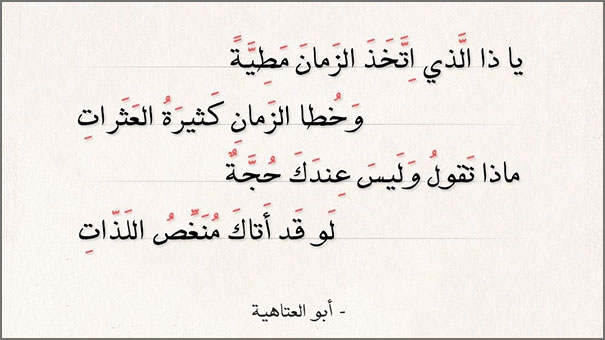 يا ذا الَّذي اِتَّخَذَ الزَمانَ مَطِيَّةً
وَخُطا الزَمانِ كَثيرَةُ العَثَراتِ
ماذا تَقولُ وَلَيسَ عِندَكَ حُجَّةٌ
لَو قَد أَتاكَ مُنَغِّصُ اللَذّاتِ
- أبو العتاهية